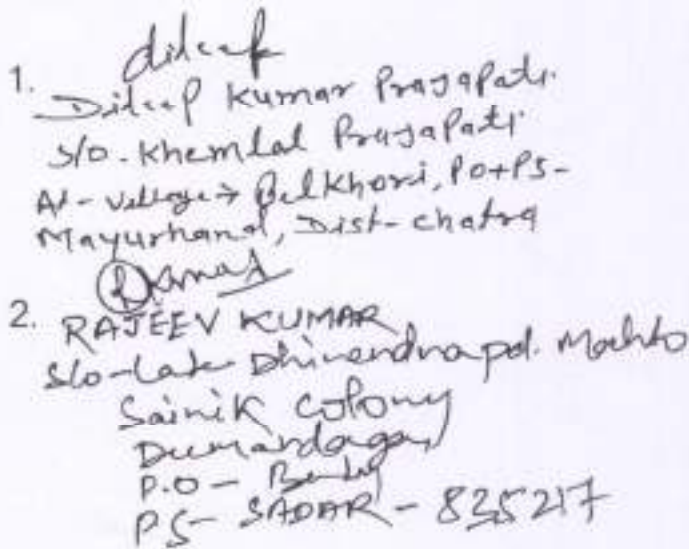 dileep
1. Dileep Kumar Prajapati.
S/o. Khemlal Prajapati
At - Village → Belkhori, Po+PS-
Mayurhand, Dist- chatra
2. RAJEEV KUMAR
S/o - Late Dhirendra pd. Mahto
Sainik Colony
P.O -
PS - SADAR - 825217